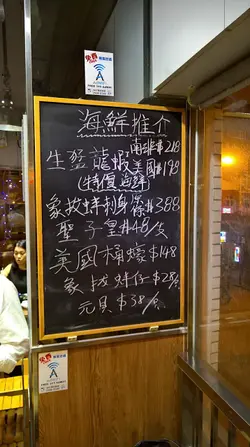 免費
海鮮推介
南非$218
生猛龍蝦美國$198
(特價海鮮)
象拔蚌刺身 $388
聖子皇$48/隻
美國桶蠔$148
象拔蚌仔$28/隻
元貝$38/隻
免費